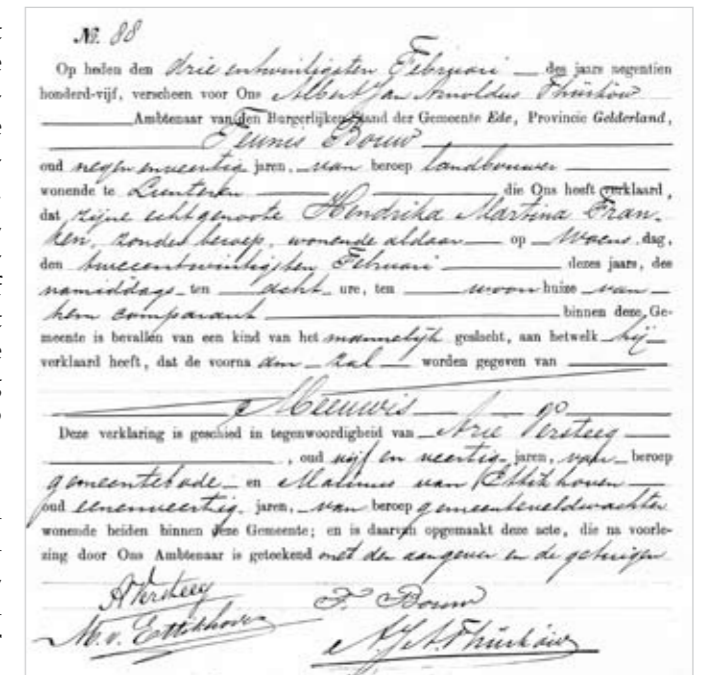 No. 88
Op heden den drie entwintigsten Februari des jaars negentien
honderd-vijf, verscheen voor Ons Albert Jan Arnoldus Thürkow
Ambtenaar van den Burgerlijken Stand der Gemeente Ede, Provincie Gelderland,
Teunis Bouw
oud negenenveertig jaren, van beroep landbouwer
wonende te Lunteren die Ons heeft verklaard,
dat zijne echtgenoote Hendrika Martina Fran-
ken, zonder beroep, wonende aldaar op Woens dag,
den tweeentwintigsten Februari dezes jaars, des
namiddags ten acht ure, ten woon huize van
hem comparant binnen deze Ge-
meente is bevallen van een kind van het mannelijk geslacht, aan hetwelk hij
verklaard heeft, dat de voorna am zal worden gegeven van
Meeuwis
Deze verklaring is geschied in tegenwoordigheid van Arie Versteeg
, oud vijf en veertig jaren, van beroep
gemeentebode en Marinus van Ettikhoven
oud eenenveertig jaren, van beroep gemeenteveldwachter
wonende beiden binnen deze Gemeente; en is daarvan opgemaakt deze acte, die na voorle-
zing door Ons Ambtenaar is geteekend met den aangever en de getuigen
A Versteeg
T. Bouw
M. v. Ettikhoven
A.J.A. Thürkow